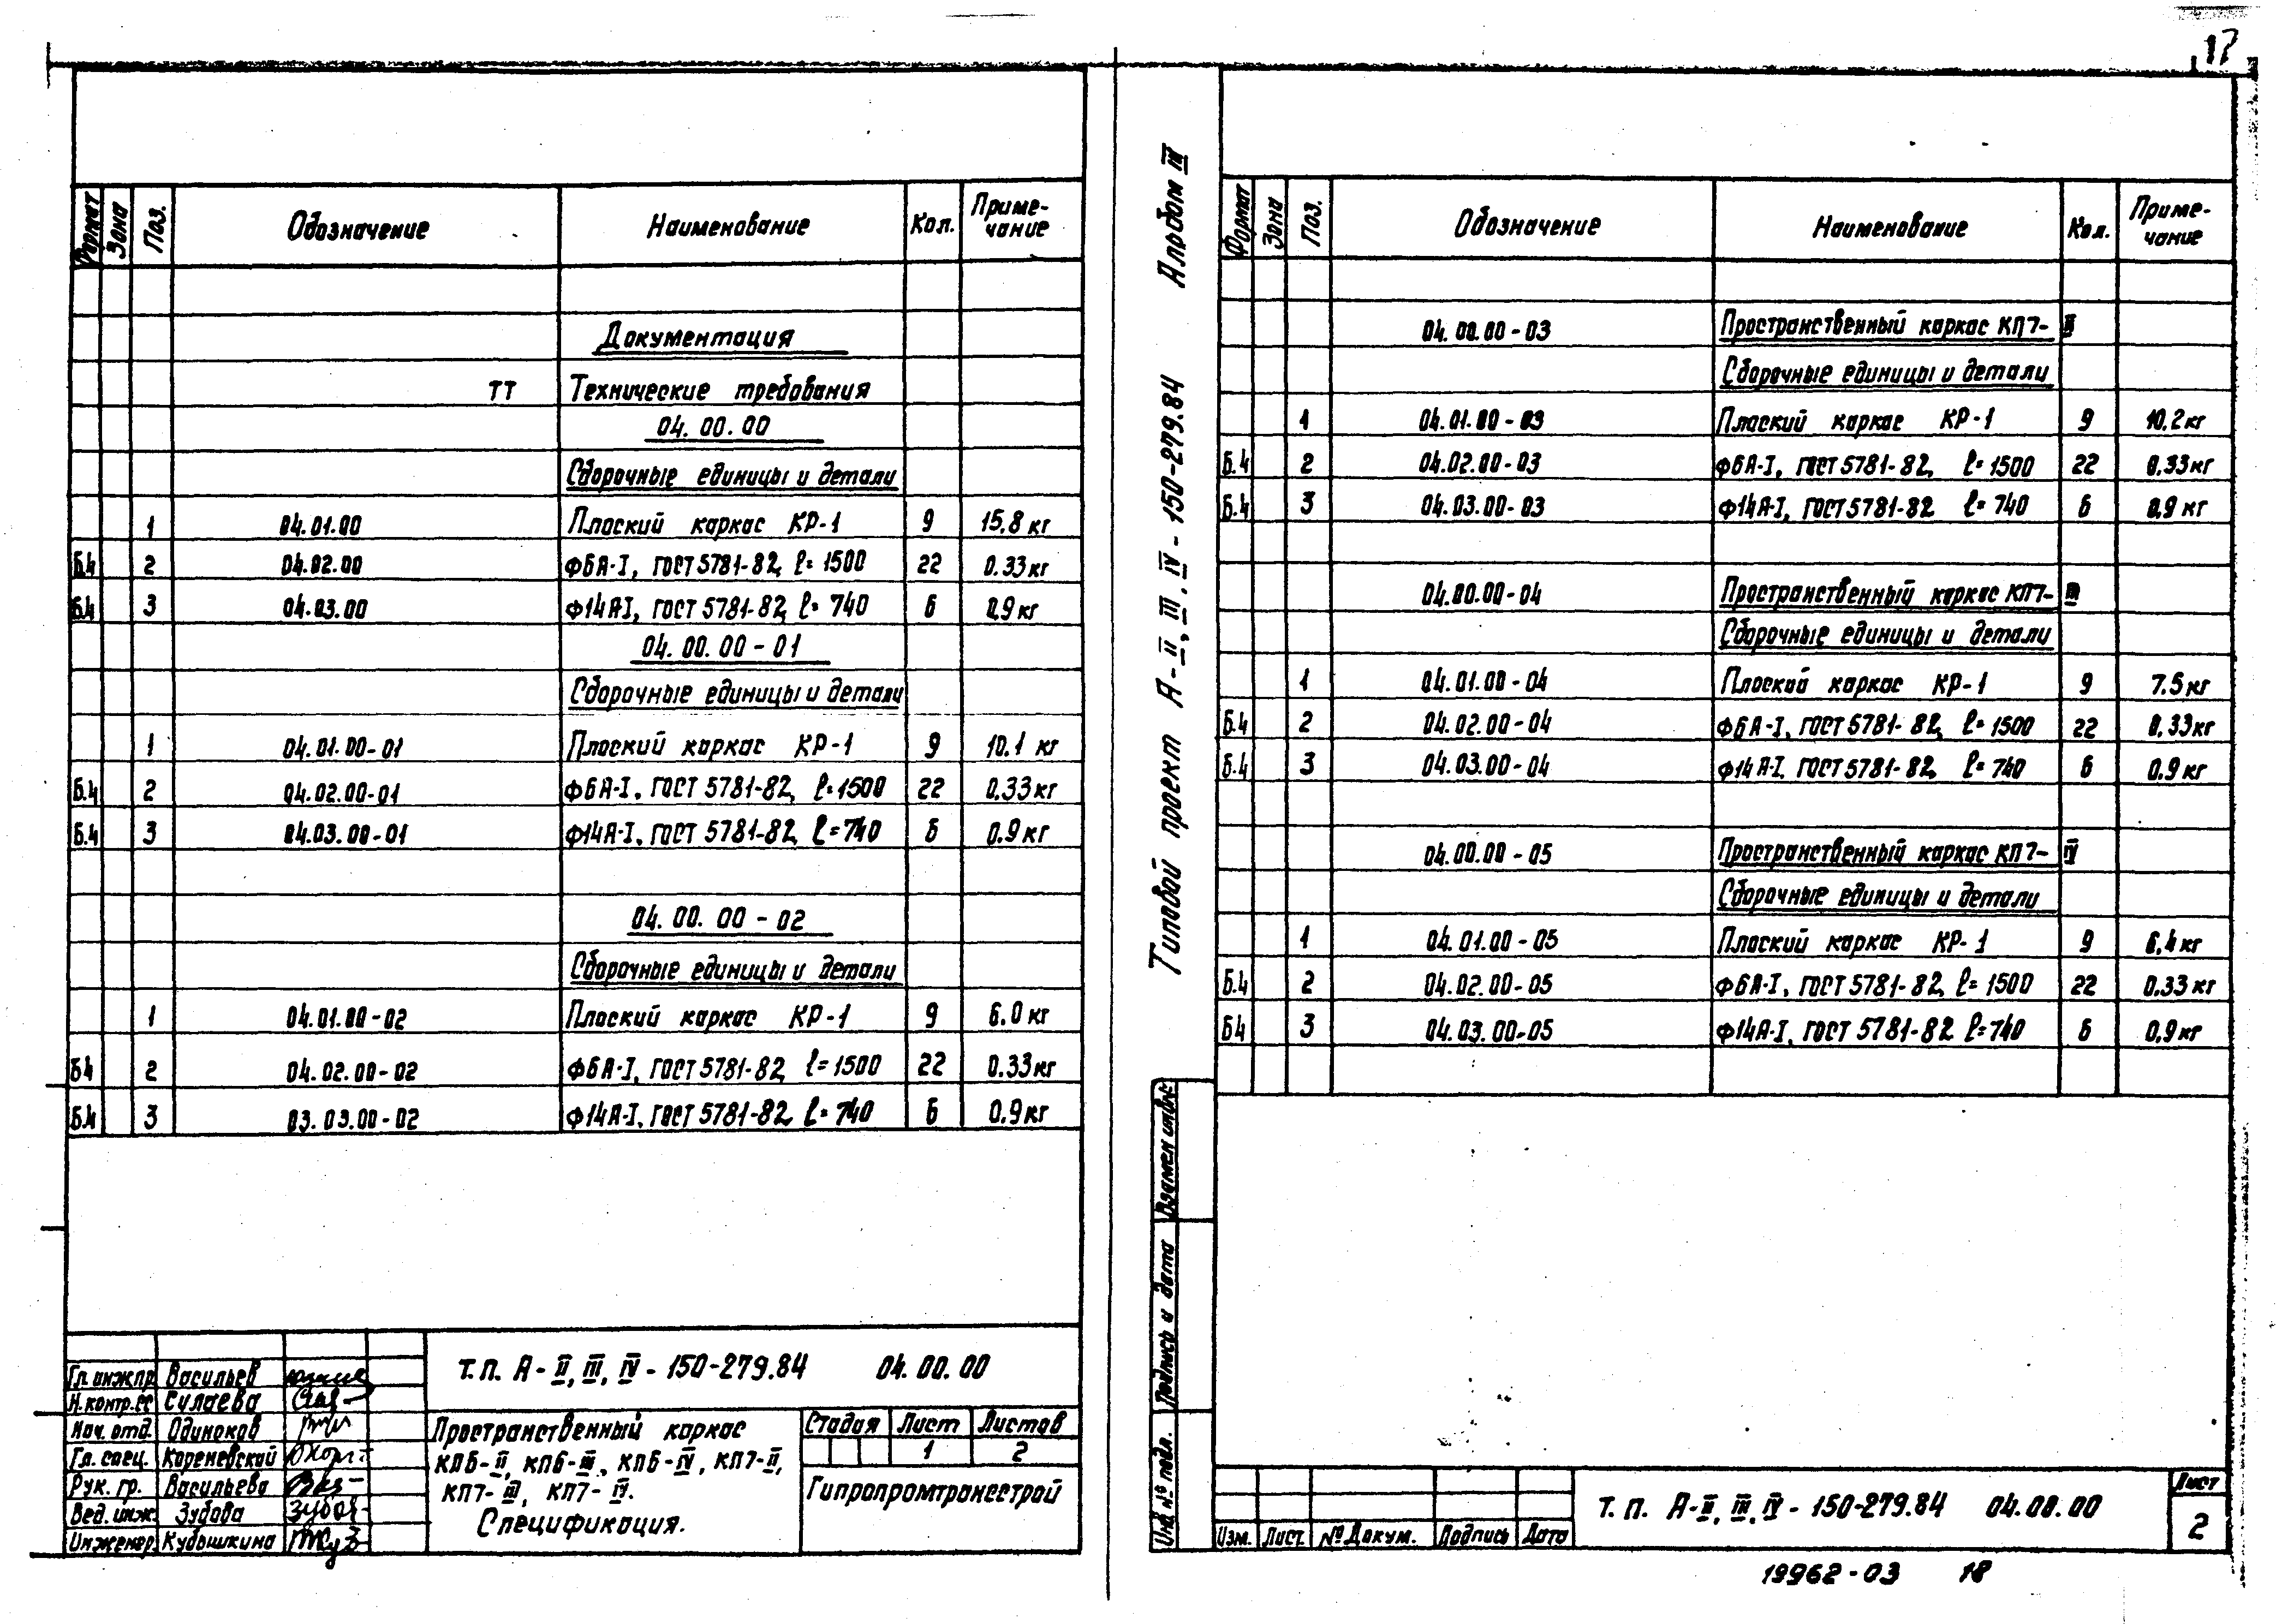 17
Формат Зона Поз. Обозначение Наименование Кол. Приме-
чание
Документация
ТТ Технические требования
04.00.00
Сборочные единицы и детали
1 04.01.00 Плоский каркас КР-1 9 15,8 кг
Б.4 2 04.02.00 Ф6А-I, ГОСТ 5781-82, ℓ=1500 22 0.33 кг
Б.4 3 04.03.00 Ф14А-I, ГОСТ 5781-82, ℓ=740 6 0,9 кг
04.00.00-01
Сборочные единицы и детали
1 04.01.00-01 Плоский каркас КР-1 9 10.1 кг
Б.4 2 04.02.00-01 Ф6А-I, ГОСТ 5781-82, ℓ=1500 22 0.33 кг
Б.4 3 04.03.00-01 Ф14А-I, ГОСТ 5781-82, ℓ=740 6 0.9 кг
04.00.00-02
Сборочные единицы и детали
1 04.01.00-02 Плоский каркас КР-1 9 6.0 кг
Б4 2 04.02.00-02 Ф6А-I, ГОСТ 5781-82, ℓ=1500 22 0.33 кг
Б.4 3 03.03.00-02 Ф14А-I, ГОСТ 5781-82, ℓ=740 6 0.9 кг
Гл. инж.пр. Васильев
Н.контр.сс Сулаева
Нач. отд. Одиноков
Гл. спец. Кореневский
Рук. гр. Васильева
Вед. инж. Зубова
Инженер Кудышкина
Т.П. А-II, III, IV-150-279.84 04.00.00
Пространственный каркас
КП6-II, КП6-III, КП6-IV, КП7-II,
КП7-III, КП7-IV.
Спецификация.
Стадия Лист Листов
1 2
Гипропромтрансстрой
Типовой проект А-II, III, IV-150-279.84 Альбом III
Взамен инв.№
Подпись и дата
Инв.№ подл.
Формат Зона Поз. Обозначение Наименование Кол. Приме-
чание
04.00.00-03 Пространственный каркас КП7-II
Сборочные единицы и детали
1 04.01.00-03 Плоский каркас КР-1 9 10,2 кг
Б.4 2 04.02.00-03 Ф6А-I, ГОСТ 5781-82, ℓ=1500 22 0,33 кг
Б.4 3 04.03.00-03 Ф14А-I, ГОСТ 5781-82 ℓ=740 6 0,9 кг
04.00.00-04 Пространственный каркас КП7-III
Сборочные единицы и детали
1 04.01.00-04 Плоский каркас КР-1 9 7.5 кг
Б.4 2 04.02.00-04 Ф6А-I, ГОСТ 5781-82, ℓ=1500 22 0,33 кг
Б.4 3 04.03.00-04 Ф14А-I, ГОСТ 5781-82, ℓ=740 6 0.9 кг
04.00.00-05 Пространственный каркас КП7-IV
Сборочные единицы и детали
1 04.01.00-05 Плоский каркас КР-1 9 6,4 кг
Б.4 2 04.02.00-05 Ф6А-I, ГОСТ 5781-82, ℓ=1500 22 0.33 кг
Б4 3 04.03.00-05 Ф14А-I, ГОСТ 5781-82 ℓ=740 6 0,9 кг
Изм. Лист № Докум. Подпись Дата
Т.П. А-II, III, IV-150-279.84 04.00.00
Лист
2
19962-03 18